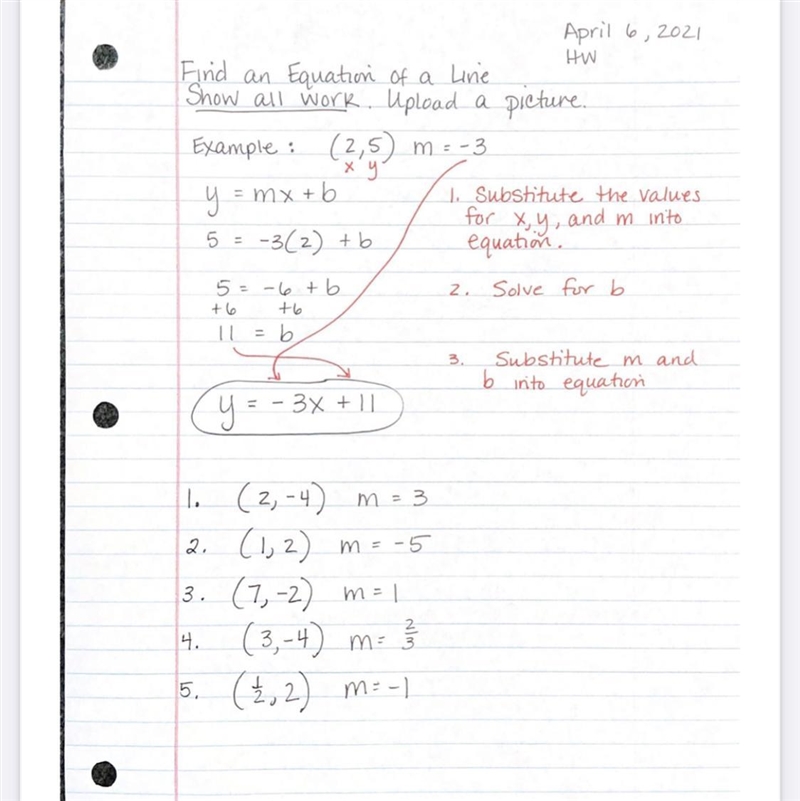 April 6, 2021
HW
Find an Equation of a Line
Show all work. Upload a picture.
Example: (2,5) m = -3
x y
y = mx + b
1. Substitute the values
for x, y, and m into
equation.
5 = -3(2) + b
5 = -6 + b
+6 +6
2. Solve for b
11 = b
3. Substitute m and
b into equation
y = -3x + 11
1. (2, -4) m = 3
2. (1, 2) m = -5
3. (7, -2) m = 1
4. (3, -4) m = 2/3
5. (1/2, 2) m = -1